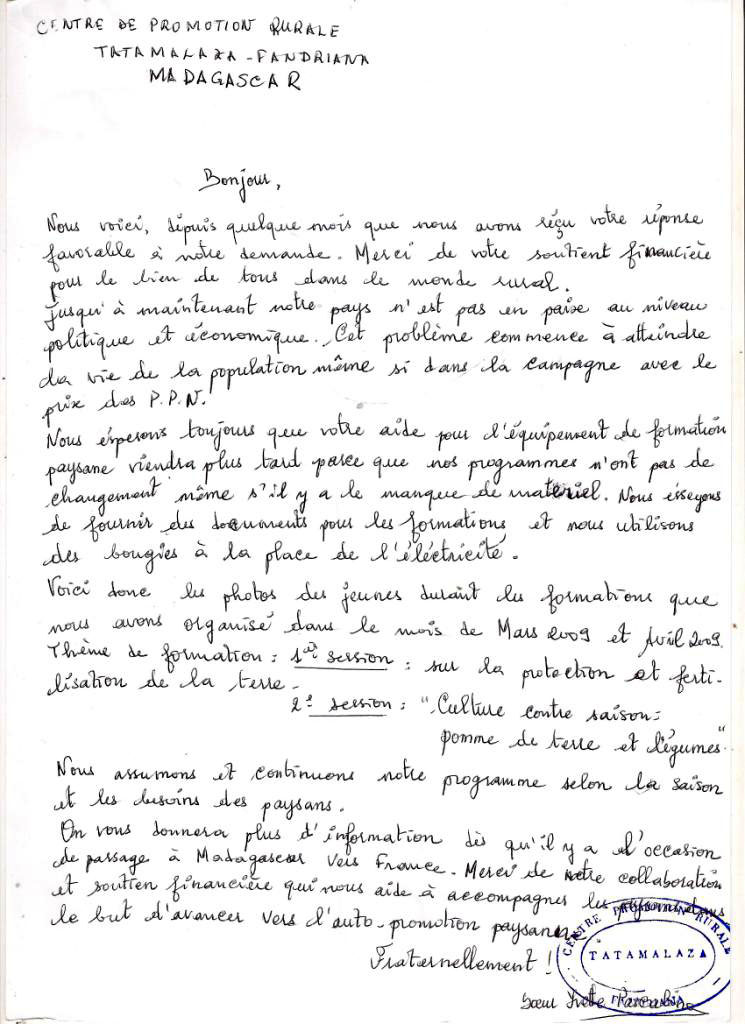 CENTRE DE PROMOTION RURALE
TATAMALAZA - FANDRIANA
MADAGASCAR
Bonjour,
Nous voici, dépuis quelque mois que nous avons réçu votre réponse
favorable à notre demande. Merci de votre soutient financière
pour le bien de tous dans le monde rural.
Jusqu'à maintenant notre pays n'est pas en paix au niveau
politique et économique. Cet problème commence à atteindre
la vie de la population même si dans la campagne avec le
prix des P.P.N.
Nous ésperons toujours que votre aide pour l'équipement de formation
paysane viendra plus tard parce que nos programmes n'ont pas de
changement même s'il y a le manque de materiel. Nous ésseyons
de fournir des documents pour les formations et nous utilisons
des bougies à la place de l'éléctricité.
Voici donc les photos des jeunes durant les formations que
nous avons organisé dans le mois de Mars 2009 et Avril 2009.
Thème de formation : 1ère session : sur la protection et ferti-
lisation de la terre.
2e session : "Culture contre saison :
pomme de terre et légumes"
Nous assumons et continuons notre programme selon la saison
et les besoins des paysans.
On vous donnera plus d'information dès qu'il y a l'occasion
de passage à Madagascar vers France. Merci de votre collaboration
et soutien financière qui nous aide à accompagner les dans
le but d'avancer vers l'auto-promotion paysanne
Fraternellement !
CENTRE PROMOTION RURALE
TATAMALAZA
FANDRIANA
Soeur Yvette